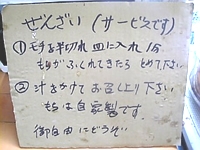 ぜんざい(サービスです)
① もちを半切れ 皿に入れ 1分
もちがふくれてきたら とめて下さい
② 汁をかけて お召し上り下さい
もちは自家製です。
御自由にどうぞ